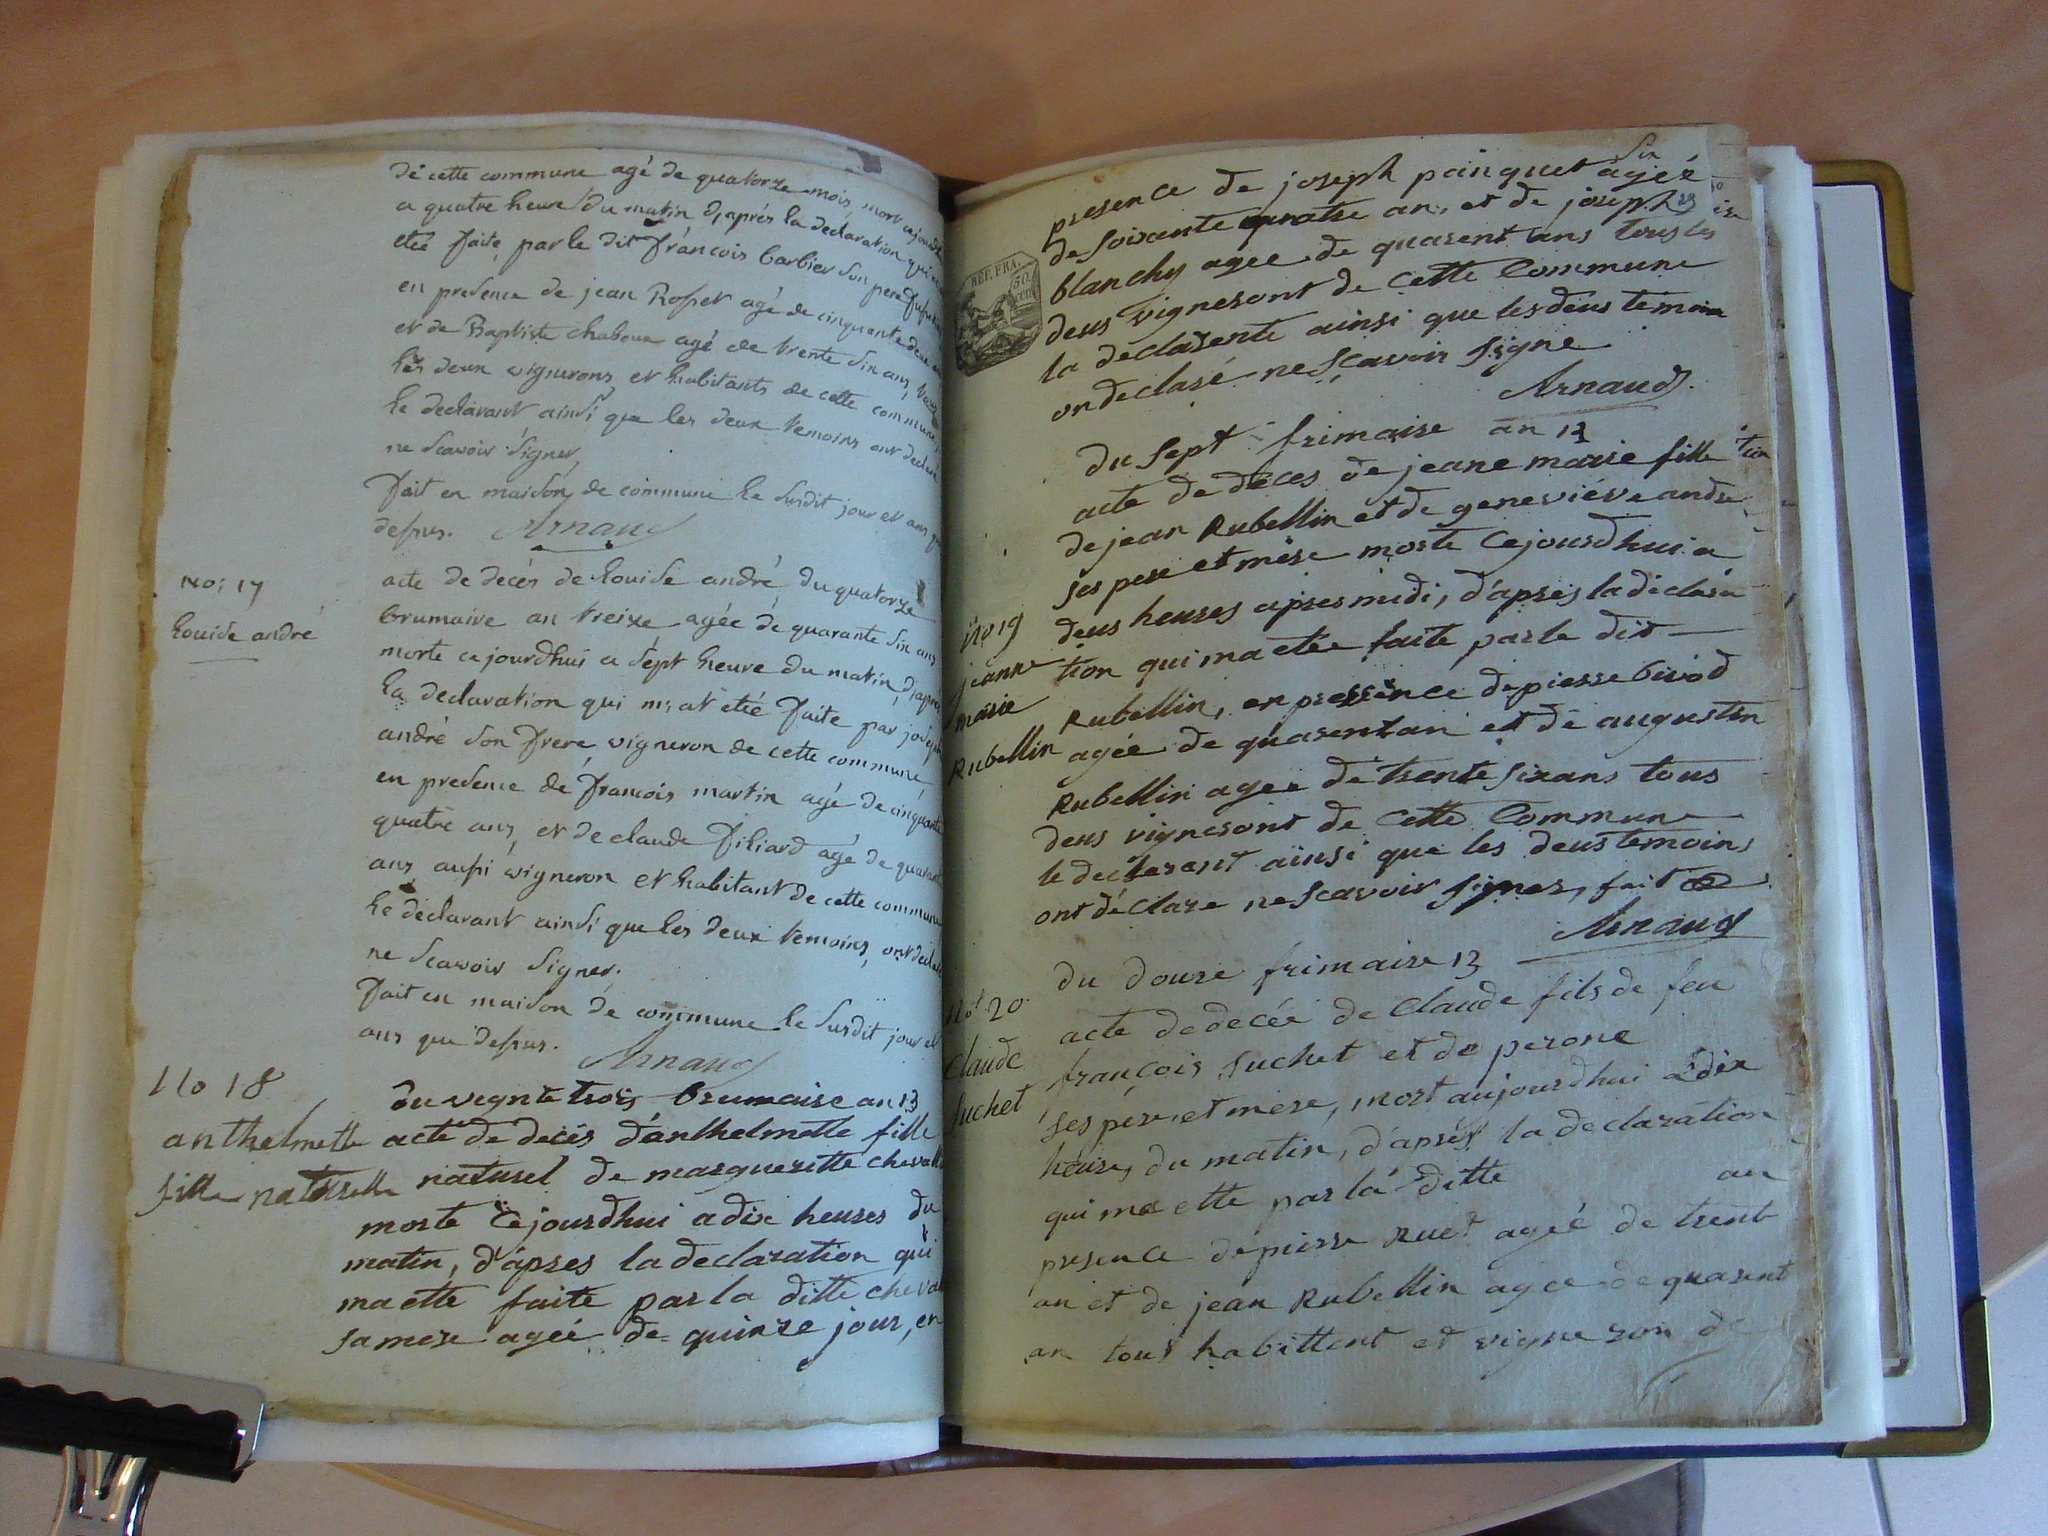 de cette commune agé de quatorze mois, mort cejourdhui
a quatre heure du matin d,aprés la declaration qui
etié faite, par le dit francois barbier son pere
en presence de jean Rosset agé de cinquante deux
et de Baptiste chaboux agé de trente six ans, tous
les deux vignerons, et habitants de cette commune,
le declarant ainsi que les deux temoins ont declaré
ne scavoir signer,
fait en maison, de commune le susdit jour et ans que
desus. Arnaud
No; 17
Louise andré
acte de decés de Louise andré, du quatorze
brumaire an treize agée dé quarante six ans
morte cejourdhui a sépt heure du matin, d,aprés
la declaration qui m,at etié faite par joseph
andré son frere, vigneron de cette commune
en presence dé francois martin agé de cinquante
quatre ans, et de claude filiard agé de quarante
ans ausi vigneron et habitant de cette commune
le déclarant ainsi que les deux temoins, ont declaré
ne scavoir signer.
fait en maison de commune le susdit jour et
ans que desus.
Arnaud
No 18
anthelmette
fille naturelle
du vegnte trois brumaire an 13
acte de decés d'anthelmette fille
naturel de margueritte cheval
morte cejourdhui a dix heures du
matin, d'apres la declaration qui
ma ette faite par la ditte cheval
sa mere ageé de quinze jour, en
presence de joseph painquet agér
six
de soixante quatre an, et de joseph
blanchy agee de quarent ans tous les
deus vigneront de cette Commune
la declarente ainsi que les deus temoin
on declaré ne scavoir signé
Arnaud
REP. FRA.
50
CEN
du sept frimaire an 13
acte de déces de jeane marie fille
de jean Rubellin et de geneviéve andre
ses pere et mère morte Cejourdhui a
deus heures apres midi, d'aprés la déclara
tion qui ma etée faite par le dit
Rubellin, en pressence de pierre bivod
agée de quarentan et de augustin
Rubellin agee de trente six ans tous
deus vigneront de Cette Commune
le declarent ainsi que les deus temoins
ont déclare ne scavoir signer, fait
Arnaud
No 19
jeanne
marie
Rubellin
du douze frimaire 13
No 20
Claude
Suchet
acte de decée de Claude fils de feu
françois Suchet et de perone
ses pére et mere, mort aujourdhui a dix
heures, du matin, d'aprés la declaration
qui ma ette par la ditte an
presence de pierre Ruet ageé de trent
an et de jean Rubellin agee de quarent
an tous habittent et vigneron de